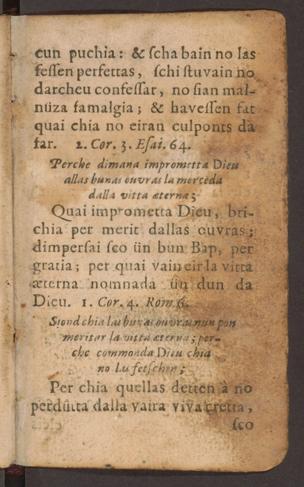 cun puchia: & ſcha bain no las
feſſen perfettas, ſchi ſtuvain no
darcheu confeſſar, no ſian mal-
nüza famalgia; & haveſſen fat
quai chia no eiran culponts da
far. 2. Cor. 3. Eſai. 64.
Perche dimana imprometta Dieu
allas bunas ouvras la merceda
dalla vitta æterna;
Quai imprometta Dieu, bri-
chia per merit dallas ouvras;
dimperſai ſco ün bun Bap, per
gratia; per quai vain eir la vitta
æterna nomnada ün dun da
Dieu. 1. Cor. 4. Rom. 6.
Siond chia las bunas ouvras nun pon
meritar la vitta æterna; per-
che commonda Dieu chia
no las fetſchen;
Per chia quellas detten à no
perdütta dalla vaira viva cretta,
ſco